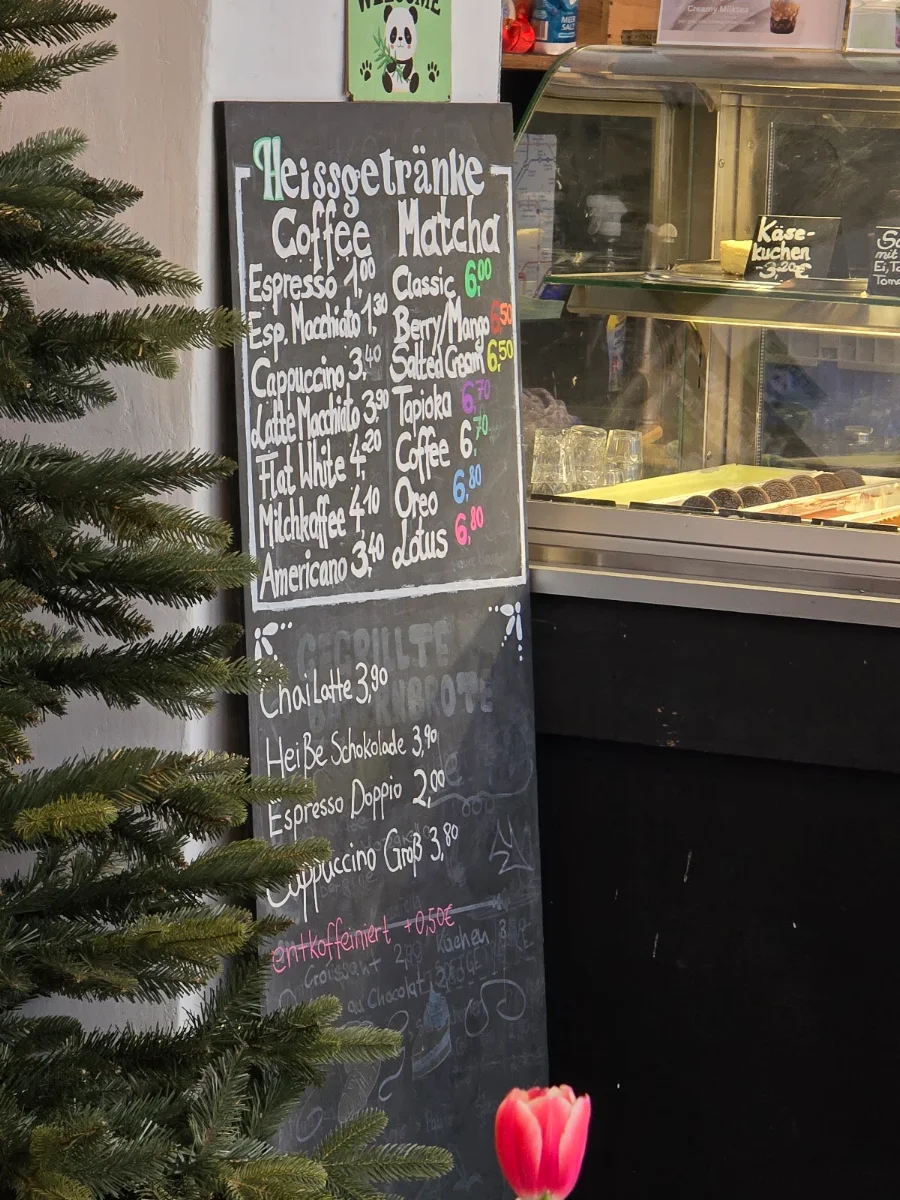 WELCOME
Creamy Milktea
MEER
SALZ
Heissgetränke
Coffee
Espresso 1,00
Esp. Macchiato 1,30
Cappuccino 3,40
Latte Macchiato 3,90
Flat White 4,20
Milchkaffee 4,10
Americano 3,40
Matcha
Classic 6,00
Berry/Mango 6,50
Salted Cream 6,50
Tapioka 6,70
Coffee 6,70
Oreo 6,80
Lotus 6,80
Käse-
kuchen
3,20€
mit
Ei, To
Toma
GEGRILLTE
Chai Latte 3,90
Heiße Schokolade 3,90
Espresso Doppio 2,00
Cappuccino Groß 3,80
entkoffeiniert +0,50€
Croissant Kuchen
au Chocolat